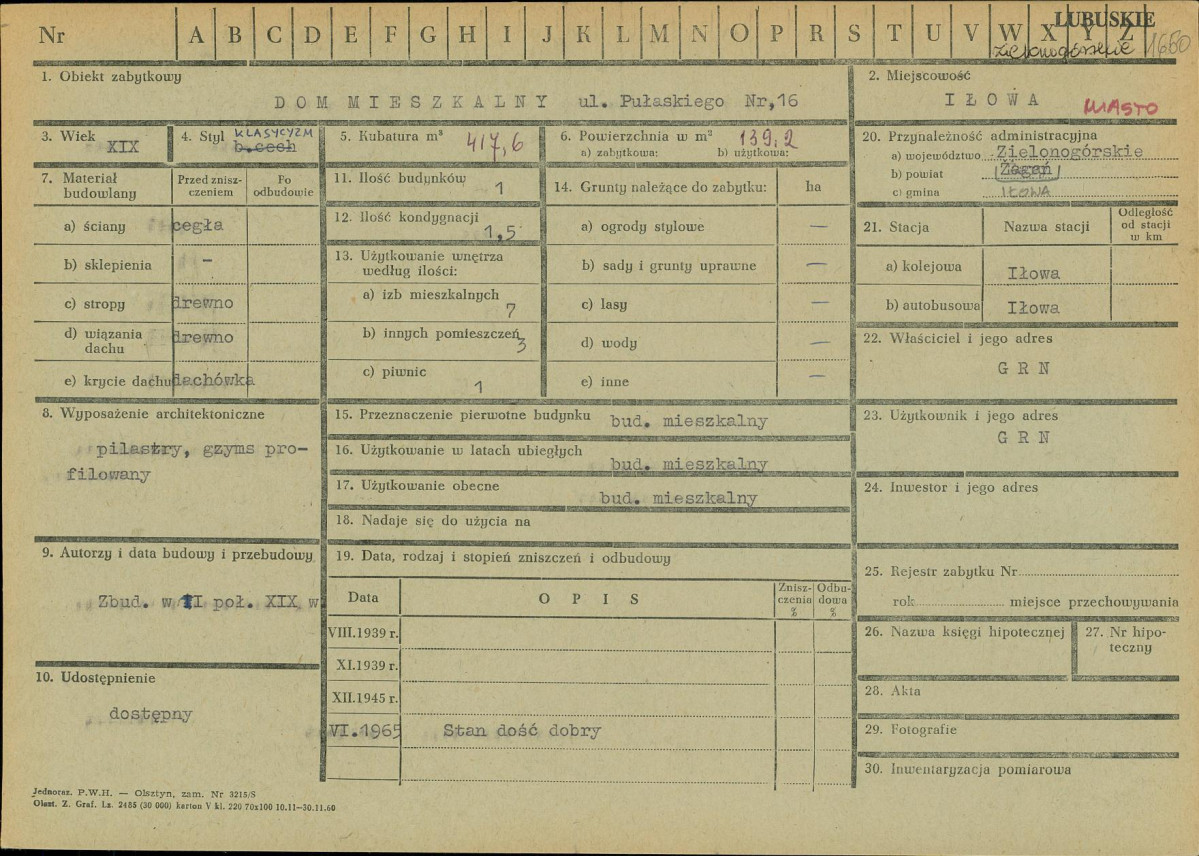 LUBUSKIE
Nr A B C D E F G H I J K L M N O P R S T U V W X Y Z
zielonogórskie 1680
1. Obiekt zabytkowy
DOM MIESZKALNY ul. Pułaskiego Nr,16
2. Miejscowość
IŁOWA
MIASTO
3. Wiek
XIX
4. Styl KLASYCYZM
b.cech
5. Kubatura m³
417,6
6. Powierzchnia w m² 139,2
a) zabytkowa: b) użytkowa:
7. Materiał budowlany
Przed znisz-
czeniem
Po
odbudowie
a) ściany cegła
b) sklepienia –
c) stropy drewno
d) wiązania
dachu drewno
e) krycie dachu dachówka
8. Wyposażenie architektoniczne
pilastry, gzyms pro-
filowany
9. Autorzy i data budowy i przebudowy
Zbud. w II poł. XIX w
10. Udostępnienie
dostępny
11. Ilość budynków
1
12. Ilość kondygnacji
1,5
13. Użytkowanie wnętrza
według ilości:
a) izb mieszkalnych
7
b) innych pomieszczeń
3
c) piwnic
1
14. Grunty należące do zabytku: ha
a) ogrody stylowe —
b) sady i grunty uprawne —
c) lasy —
d) wody —
e) inne —
15. Przeznaczenie pierwotne budynku bud. mieszkalny
16. Użytkowanie w latach ubiegłych
bud. mieszkalny
17. Użytkowanie obecne
bud. mieszkalny
18. Nadaje się do użycia na
19. Data, rodzaj i stopień zniszczeń i odbudowy
Data OPIS
Znisz-
czenia
%
Odbu-
dowa
%
VIII.1939 r.
XI.1939 r.
XII.1945 r.
VI.1965 Stan dość dobry
20. Przynależność administracyjna
a) województwo Zielonogórskie
b) powiat Żagań
c) gmina IŁOWA
21. Stacja Nazwa stacji
Odległość
od stacji
w km
a) kolejowa Iłowa
b) autobusowa Iłowa
22. Właściciel i jego adres
GRN
23. Użytkownik i jego adres
GRN
24. Inwestor i jego adres
25. Rejestr zabytku Nr
rok miejsce przechowywania
26. Nazwa księgi hipotecznej
27. Nr hipo-
teczny
28. Akta
29. Fotografie
30. Inwentaryzacja pomiarowa
Jednoraz. P.W.H. — Olsztyn, zam. Nr 3215/S
Olszt. Z. Graf. Lz. 2485 (30 000) karton V kl. 220 70x100 10.11—30.11.60